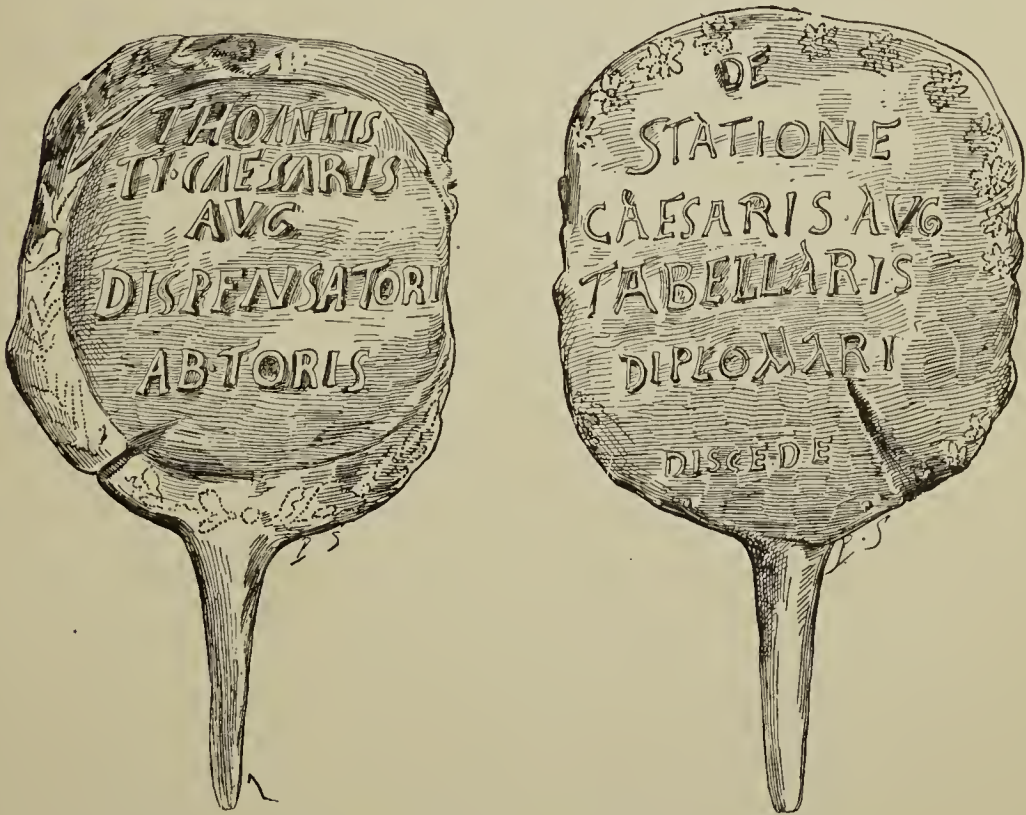 THOANTIS
TI·CAESARIS
AVG
DISPENSATORI
AB·TORIS
DE
STATIONE
CAESARIS·AVG
TABELLARIS
DIPLOMARI
DISCEDE